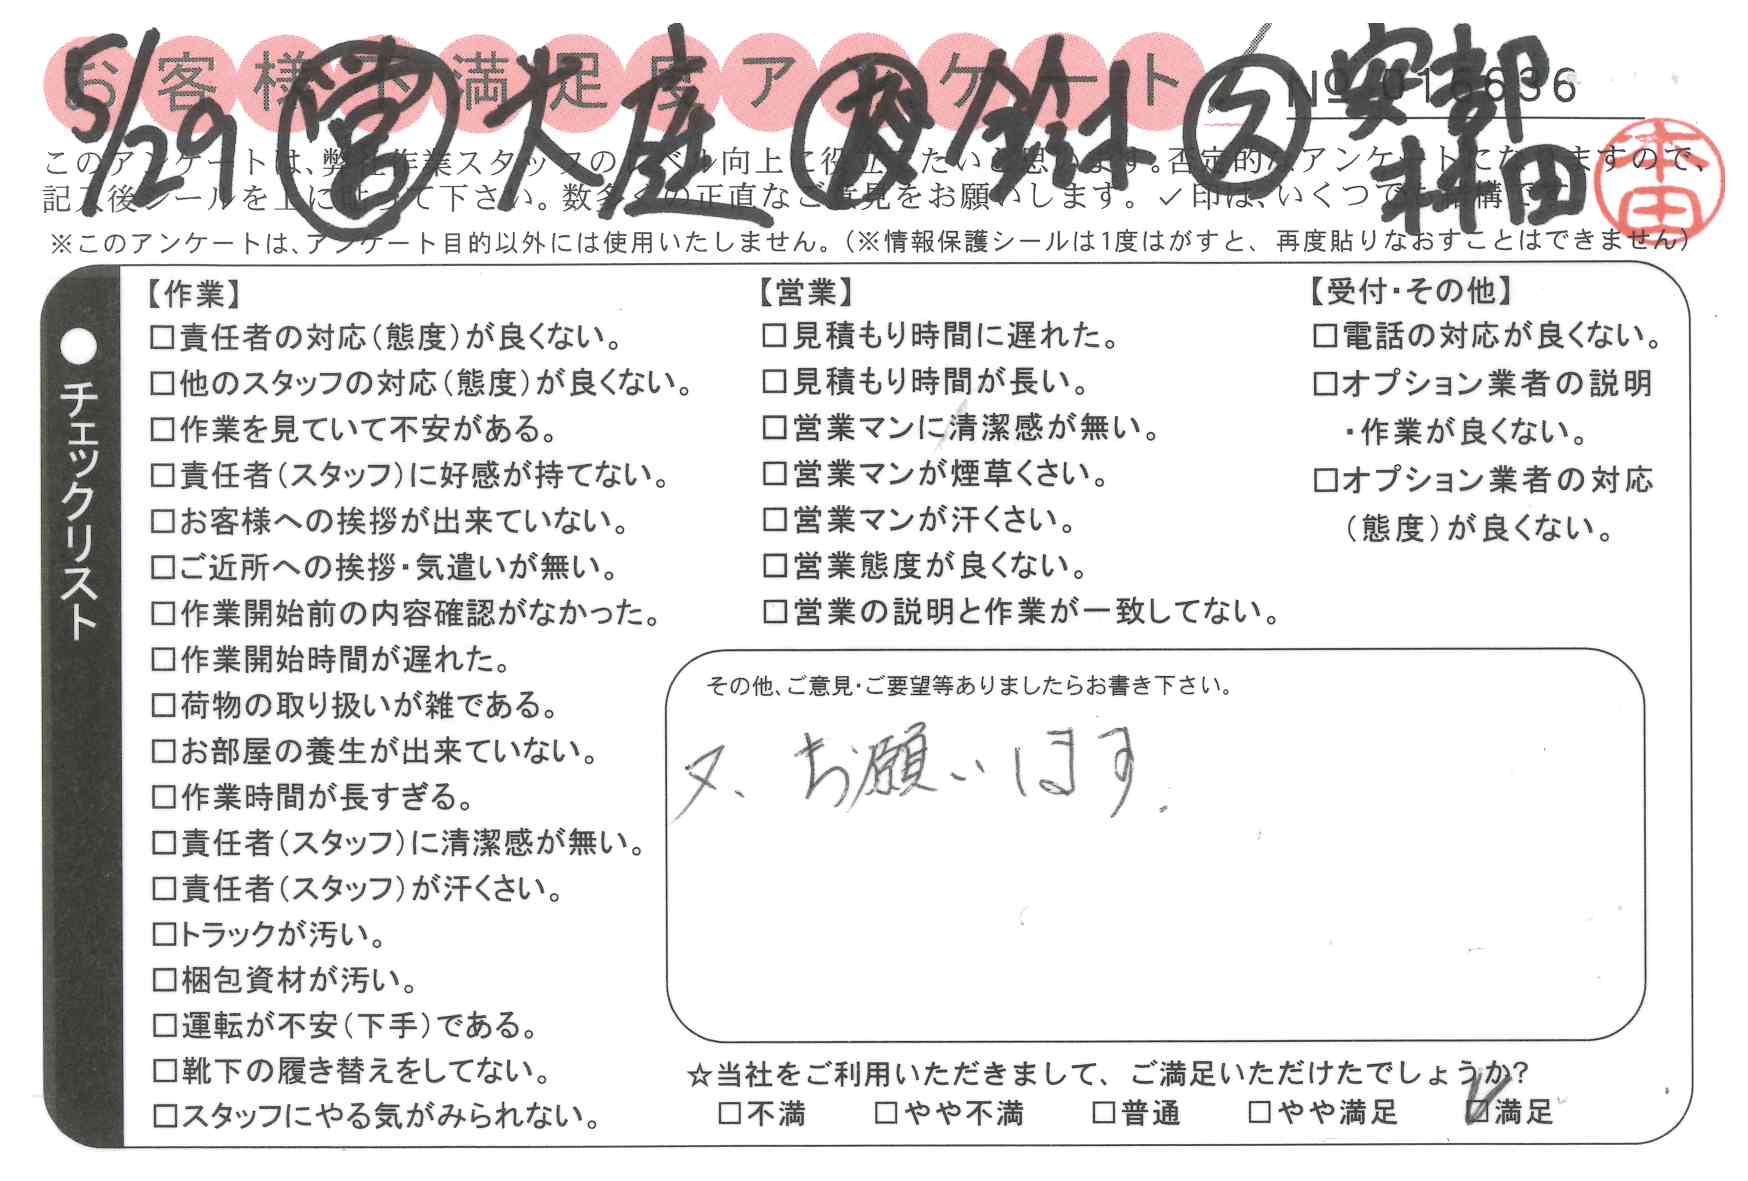 お客様不満足度アンケート
No 016636
5/29 営 大庭 鈴木 ス 安部
料田
本田
このアンケートは、弊社作業スタッフのレベル向上に役立てたいと思います。否定的なアンケートになりますので、
記入後シールを上に貼って下さい。数多くの正直なご意見をお願いします。✓印は、いくつでも結構です。
※このアンケートは、アンケート目的以外には使用いたしません。（※情報保護シールは1度はがすと、再度貼りなおすことはできません）
●チェックリスト
【作業】
□責任者の対応（態度）が良くない。
□他のスタッフの対応（態度）が良くない。
□作業を見ていて不安がある。
□責任者（スタッフ）に好感が持てない。
□お客様への挨拶が出来ていない。
□ご近所への挨拶・気遣いが無い。
□作業開始前の内容確認がなかった。
□作業開始時間が遅れた。
□荷物の取り扱いが雑である。
□お部屋の養生が出来ていない。
□作業時間が長すぎる。
□責任者（スタッフ）に清潔感が無い。
□責任者（スタッフ）が汗くさい。
□トラックが汚い。
□梱包資材が汚い。
□運転が不安（下手）である。
□靴下の履き替えをしてない。
□スタッフにやる気がみられない。
【営業】
□見積もり時間に遅れた。
□見積もり時間が長い。
□営業マンに清潔感が無い。
□営業マンが煙草くさい。
□営業マンが汗くさい。
□営業態度が良くない。
□営業の説明と作業が一致してない。
【受付・その他】
□電話の対応が良くない。
□オプション業者の説明
・作業が良くない。
□オプション業者の対応
（態度）が良くない。
その他、ご意見・ご要望等ありましたらお書き下さい。
又、お願いします。
☆当社をご利用いただきまして、ご満足いただけたでしょうか?
□不満 □やや不満 □普通 □やや満足 ☑満足